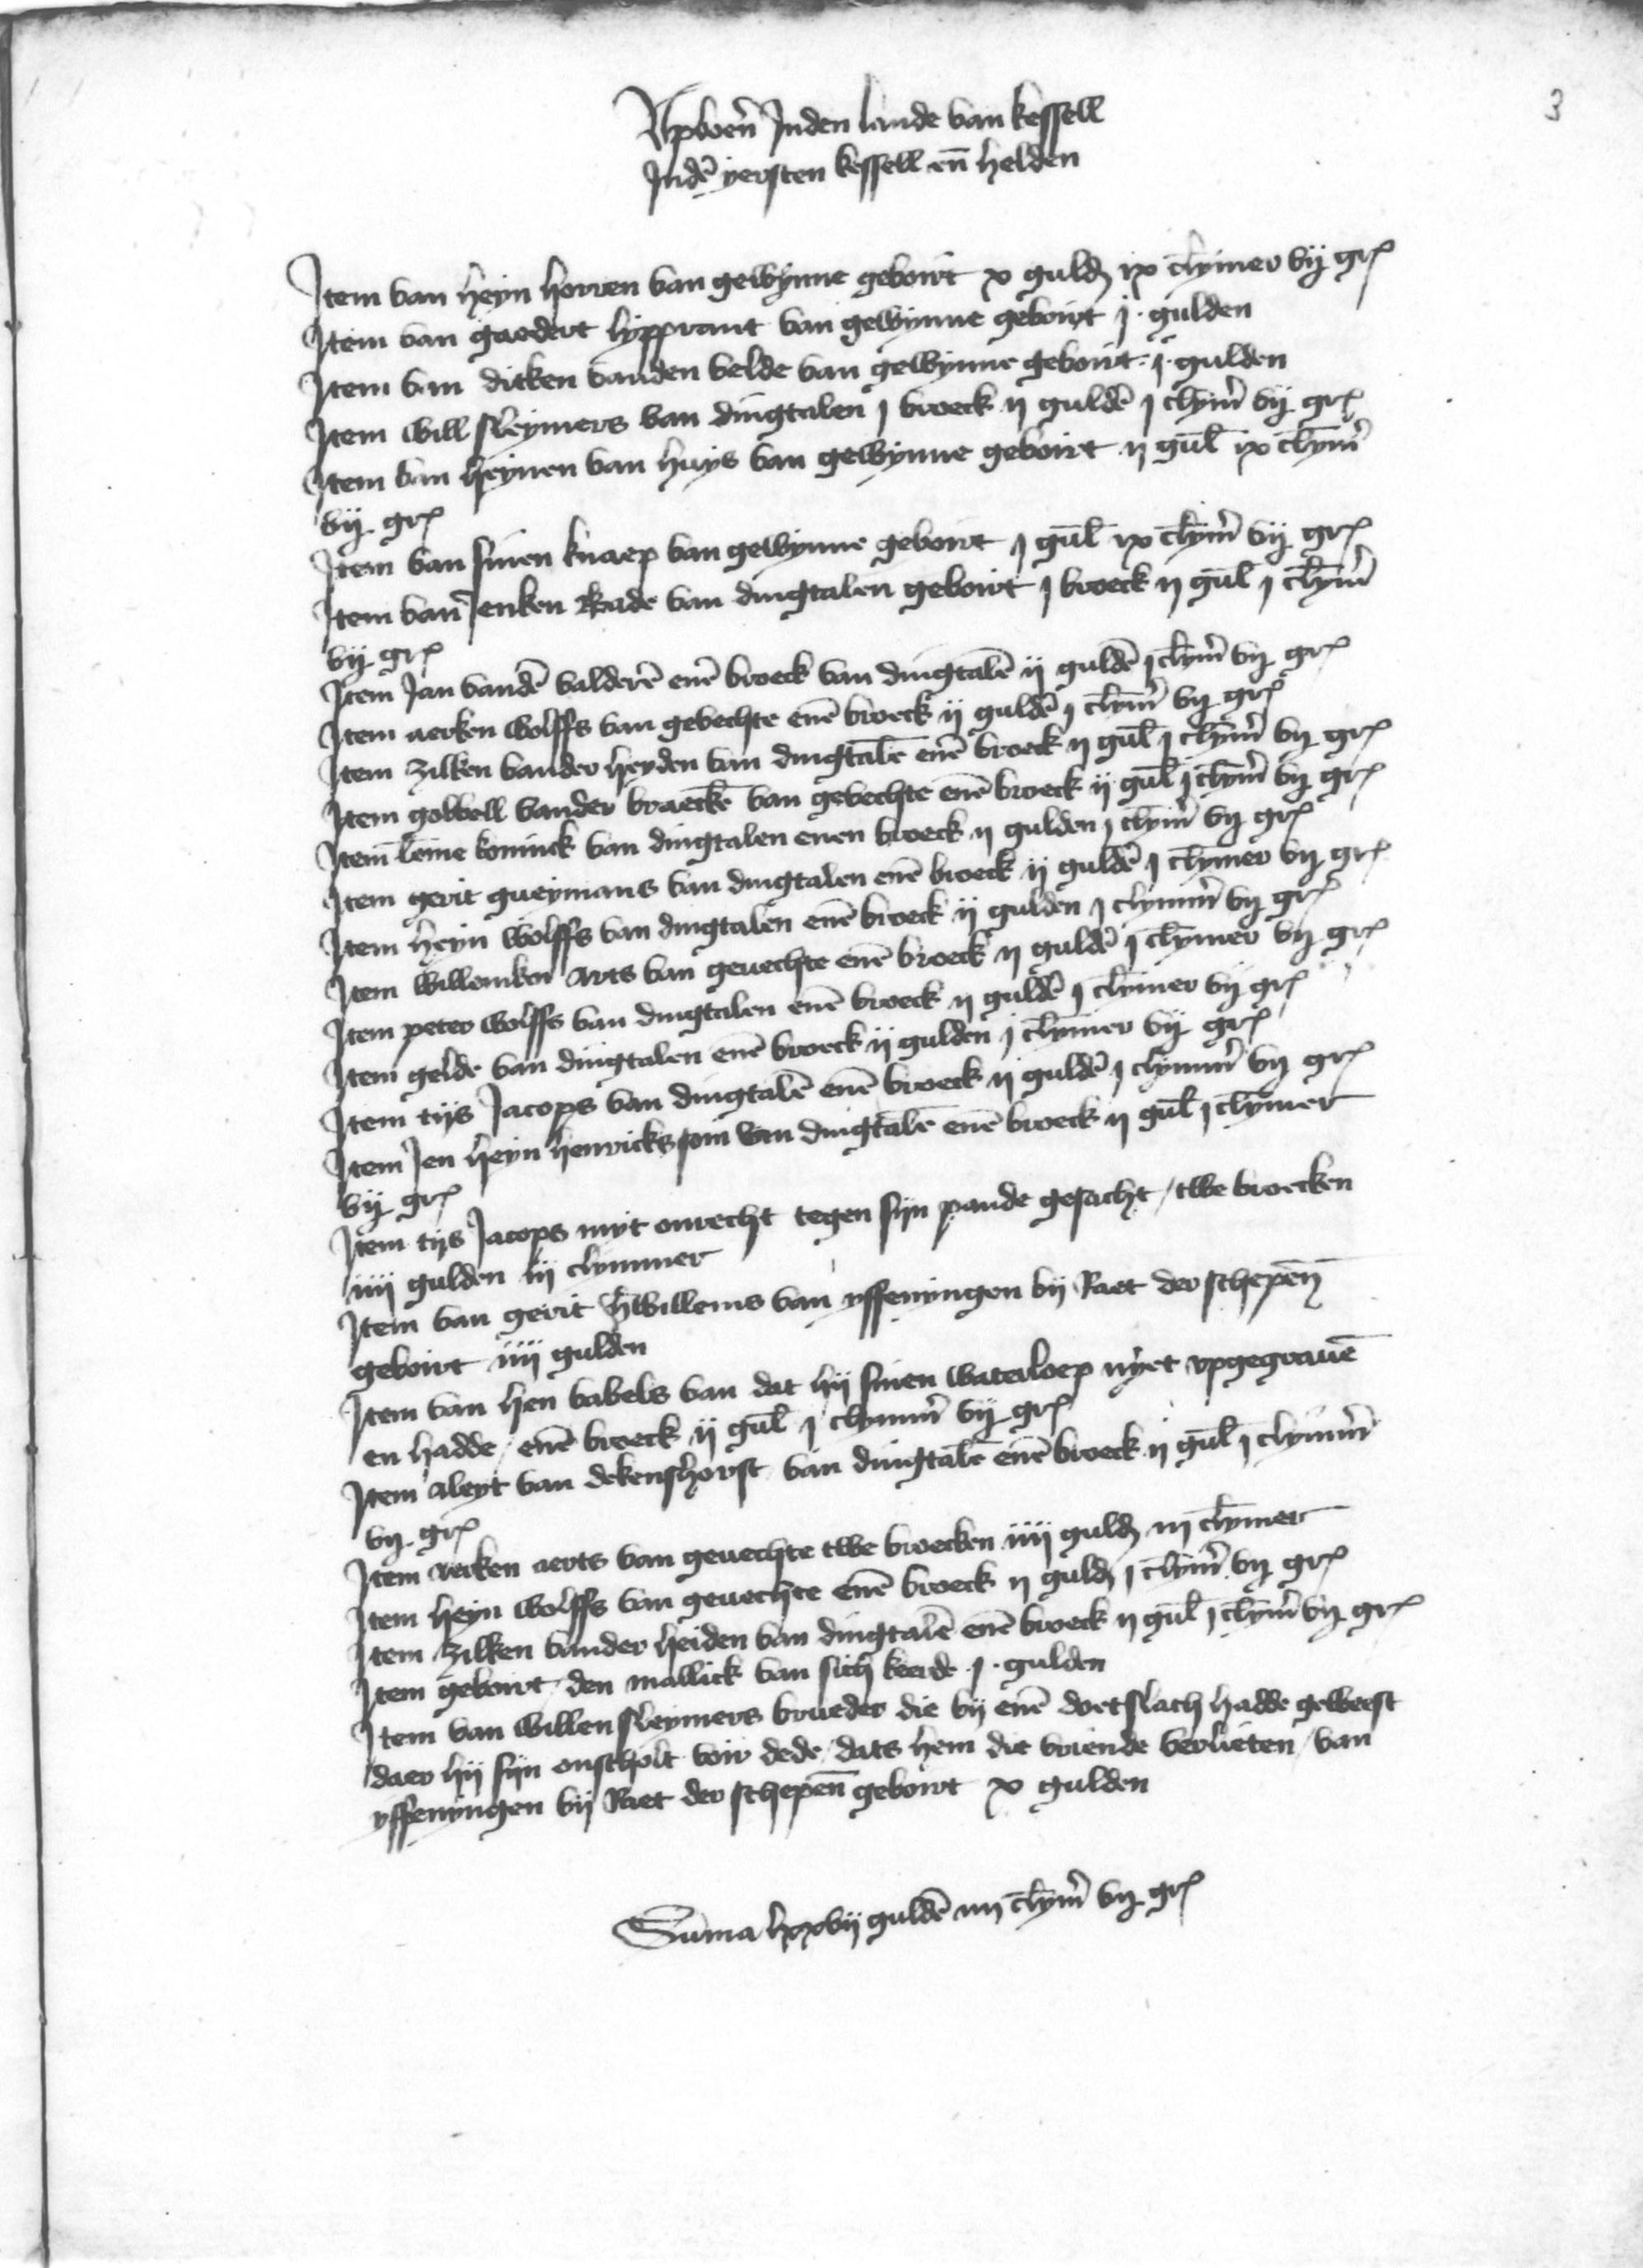 3
Upboeren Inden lande van kessell
Inden yersten kessell en helden
Item van heyn horren van gewynne geboirt x guld ix clymer vij gr
Item van gaedert lypprant van gewynne geboirt j gulden
Item van ditken vanden velde van gewynne geboirt j gulden
Item will sleymers van dingtalen j broeck ij gulde j clym vij gr
Item van heynen van huys van gewynne geboirt ij gul ix clym
vij gr
Item van sinen knaep van gewynne geboirt j gul ix clym vij gr
Item van Jenken Rade van dingtalen geboirt j broeck ij gul j clym
vij gr
Item Jan vande valdere ene broeck van dingtale ij gulde j clym vij gr
Item aerken wolffs van gevechte ene broeck ij gulde j clym vij gr
Item zilken vander heyden van dingtale ene broeck ij gul j clym vij gr
Item gobbell vander braecke van gevechte ene broeck ij gul j clym vij gr
Item leme koninck van dingtalen enen broeck ij gulden j clym vij gr
Item gerit gueymans van dingtalen ene broeck ij gulde j clymer vij gr
Item heyn wolffs van dingtalen ene broeck ij gulden j clymm vij gr
Item willemken arts van gevechte ene broeck ij gulde j clymer vij gr
Item peter wolffs van dingtalen ene broeck ij gulde j clymer vij gr
Item gelde van dingtalen ene broeck ij gulden j clymer vij gr
Item tijs Jacops van dingtale ene broeck ij gulde j clymm vij gr
Item Jen heyn henricks soin van dingtale ene broeck ij gul j clymer
vij gr
Item tijs Jacops myt onrecht tegen syn pande gesacht / twe broecken
iiij gulden iij clymmer
Item van gerit willems van yffenyngen by Raet der schepen
geboirt iiij gulden
Item van hen babels van dat hij sinen waterloep nyet upgegrave
en hadde / ene broeck ij gul j clymm vij gr
Item aleyt van dekenshorst van dingtale ene broeck ij gul j clymm
vij gr
Item aerken aerts van gevechte twe broecken iiij guld iij clymer
Item heyn wolffs van gevechte ene broeck ij guld j clym vij gr
Item zilken vander heiden van dingtale ene broeck ij gul j clym vij gr
Item geboirt den mallick van sich keerde j gulden
Item van willen sleymers brueder die by ene doetslach hadde geweest
daer hij syn onscholt voir dede / dats hem die vriende verlieten / van
yffenyngen by Raet der schepen geboirt x gulden
Suma lxxvij gulde iiij clym vij gr